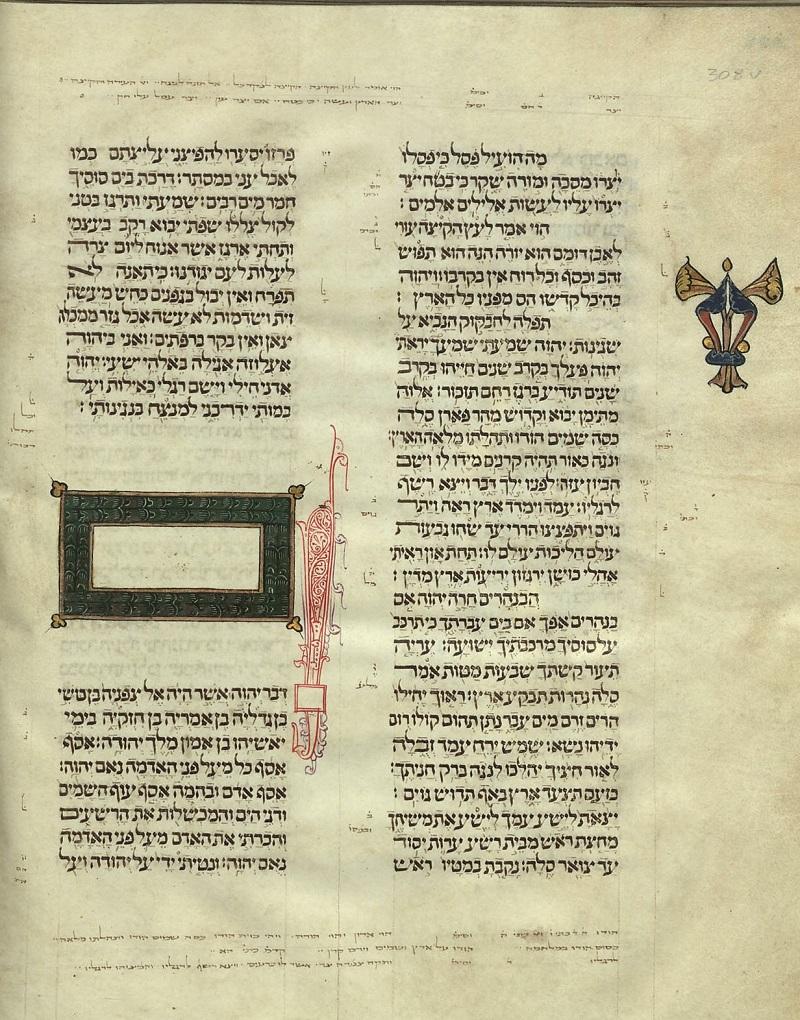 מה הועיל פסל כי פסלו
יצרו מסכה ומורה שקר כי בטח יצר
יצרו עליו לעשות אלילים אלמים׃
הוי אמר לעץ הקיצה עורי
לאבן דומם הוא יורה הנה הוא תפוש
זהב וכסף וכל רוח אין בקרבו׃ ויהוה
בהיכל קדשו הס מפניו כל הארץ׃
תפלה לחבקוק הנביא על
שגינות׃ יהוה שמעתי שמעך יראתי
יהוה פעלך בקרב שנים חייהו בקרב
שנים תודיע ברגז רחם תזכור׃ אלוה
מתימן יבוא וקדוש מהר פארן סלה
כסה שמים הודו ותהלתו מלאה הארץ׃
ונגה כאור תהיה קרנים מידו לו ושם
חביון עזה׃ לפניו ילך דבר ויצא רשף
לרגליו׃ עמד וימדד ארץ ראה ויתר
גוים ויתפצצו הררי עד שחו גבעות
עולם הליכות עולם לו׃ תחת און ראיתי
אהלי כושן ירגזון יריעות ארץ מדין׃
הבנהרים חרה יהוה אם
בנהרים אפך אם בים עברתך כי תרכב
על סוסיך מרכבתיך ישועה׃ עריה
תעור קשתך שבעות מטות אמר
סלה נהרות תבקע ארץ׃ ראוך יחילו
הרים זרם מים עבר נתן תהום קולו רום
ידיהו נשא׃ שמש ירח עמד זבלה
לאור חציך יהלכו לנגה ברק חניתך׃
בזעם תצעד ארץ באף תדוש גוים׃
יצאת לישע עמך לישע את משיחך
מחצת ראש מבית רשע ערות יסוד
עד צואר סלה׃ נקבת במטיו ראש
פרזו יסערו להפיצני עליצתם כמו
לאכל עני במסתר׃ דרכת בים סוסיך
חמר מים רבים׃ שמעתי ותרגז בטני
לקול צללו שפתי יבוא רקב בעצמי
ותחתי ארגז אשר אנוח ליום צרה
לעלות לעם יגודנו׃ כי תאנה לא
תפרח ואין יבול בגפנים כחש מעשה
זית ושדמות לא עשה אכל גזר ממכלה
צאן ואין בקר ברפתים׃ ואני ביהוה
אעלוזה אגילה באלהי ישעי׃ יהוה
אדני חילי וישם רגלי כאילות ועל
במותי ידריכני למנצח בנגינותי׃
דבר יהוה אשר היה אל צפניה בן כושי
בן גדליה בן אמריה בן חזקיה בימי
יאשיהו בן אמון מלך יהודה׃ אסף
אסף כל מעל פני האדמה נאם יהוה׃
אסף אדם ובהמה אסף עוף השמים
ודגי הים והמכשלות את הרשעים
והכרתי את האדם מעל פני האדמה
נאם יהוה׃ ונטיתי ידי על יהודה ועל